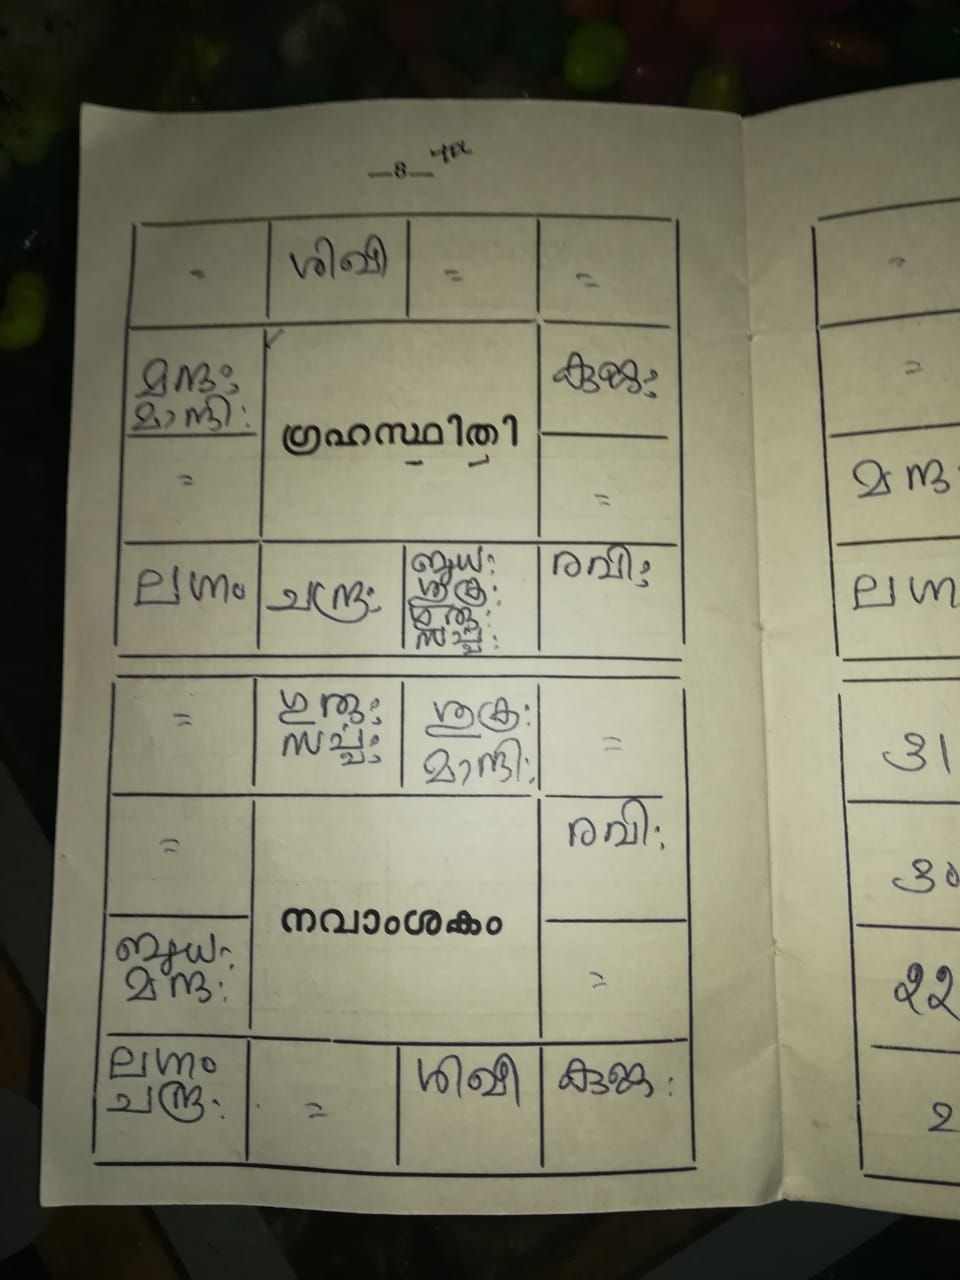 —8—
= ശിഖീ = =
മന്ദഃ
മാന്ദിഃ
കുജഃ
ഗ്രഹസ്ഥിതി
= =
ലഗ്നം ചന്ദ്രഃ
ബുധഃ
ശുക്രഃ
ഗുരുഃ
സർപ്പഃ
രവിഃ
=
ഗുരുഃ
സർപ്പഃ
ശുക്രഃ
മാന്ദിഃ
=
= രവിഃ
നവാംശകം
ബുധഃ
മന്ദഃ
=
ലഗ്നം
ചന്ദ്രഃ
= ശിഖീ കുജഃ
=
=
മന്ദ
ലഗ്ന
൩൧
൩൦
൨൨
൨